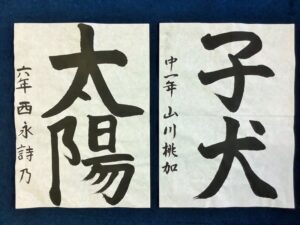 子犬
中一年 山川桃加
太陽
六年 西永詩乃